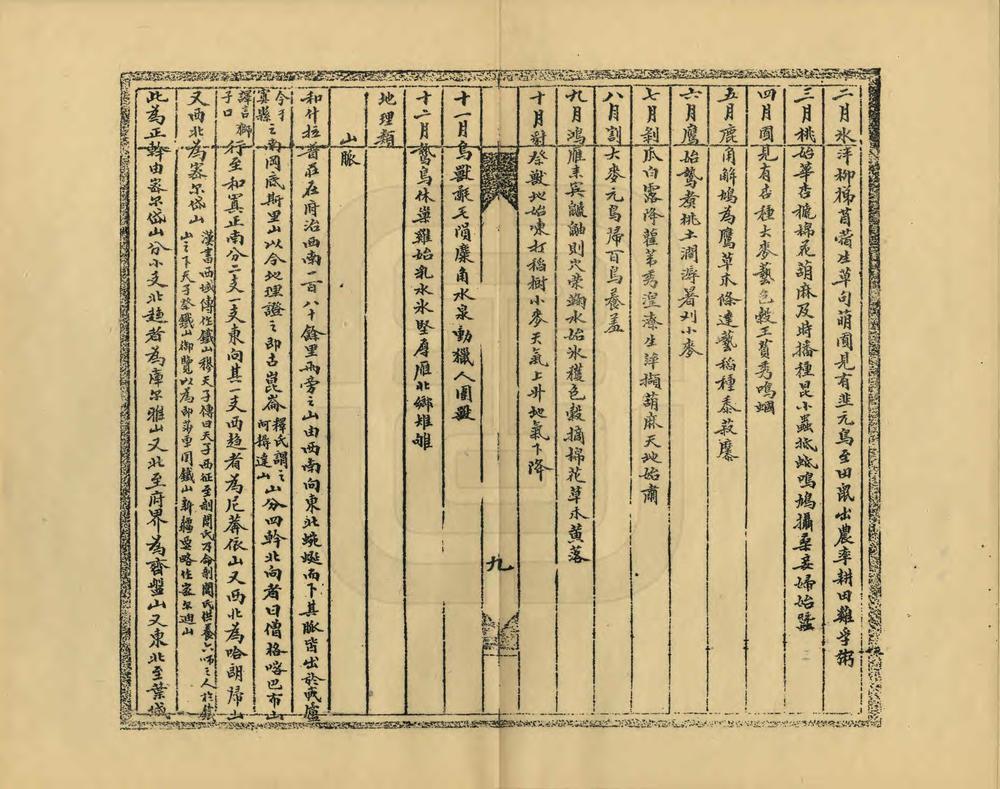 二月冰泮柳梯菖蓿生草句萌園見有韭元鳥至田鼠出農率耕田雞孚粥
三月桃始華杏穠棉花葫麻及時播種昆小蟲抵蚳鳴鳩攝桑妾婦始蠶
四月園見有杏種大麥藝色穀王萯秀鳴蜩
五月鹿角解鳩為鷹草木條達藝稻種黍菽糜
六月鷹始鷙煮桃土潤溽暑刈小麥
七月剝瓜白露降雚葦秀湟潦生萍擷葫麻天地始肅
八月割大麥元鳥歸百鳥養羞
九月鴻雁來賓鼬則穴榮鞠水始氷穫色穀摘棉花草木黃落
十月豺祭獸地始凍打稻樹小麥天氣上升地氣下降
九
十一月鳥獸氄毛隕麋角水泉動獵人圍獸
十二月鷙鳥休巢雞始乳水氷堅厚雁北鄉雉雊
地理類
山脈
和什拉普莊在府治西南一百八十餘里兩旁之山由西南向東北蜿蜒而下其脈皆出於
今于闐縣之南岡底斯里山以今地理證之即古崑崙釋氏謂之阿耨達山山分四幹北向者曰僧格喀巴布山
譯言獅子口行至和闐正南分二支一支東向其一支西趨者為尼蟒依山又西北為哈朗歸山
又西北為密爾岱山漢書西域傳作鐵山穆天子傳曰天子西征至剞閭氏乃命剞閭氏供養六師之人於鐵山之下天子祭鐵山御覽以為即第重閏鐵山新疆要略作密爾迪山
此為正幹由密爾岱山分小支北趨者為庫爾雅山又北至府界為齊盤山又東北至葉城